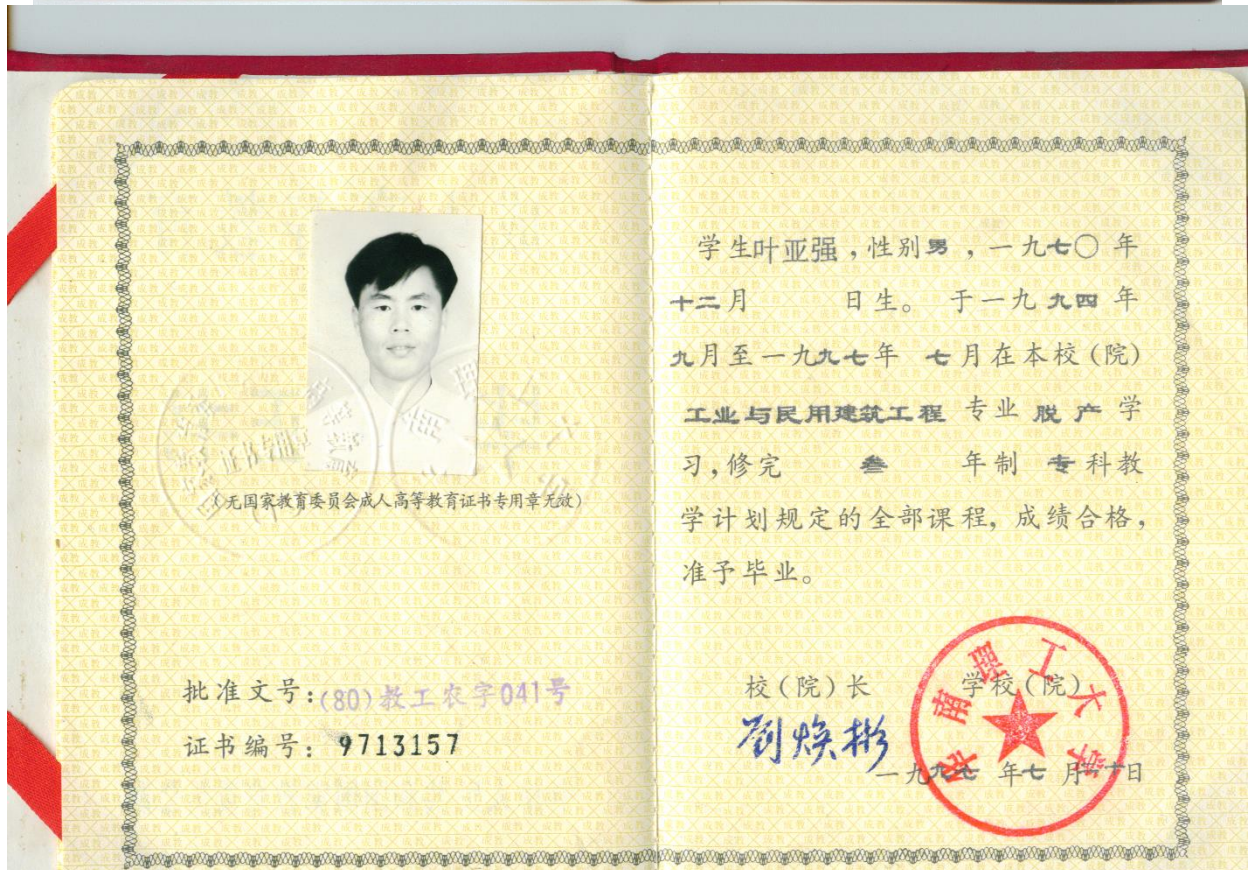 (无国家教育委员会成人高等教育证书专用章无效)
批准文号:(80)教工农字041号
证书编号: 9713157
学生叶亚强,性别男,一九七〇年
十二月 日生。于一九九四年
九月至一九九七年 七月在本校(院)
工业与民用建筑工程 专业 脱产 学
习,修完 叁 年制 专科教
学计划规定的全部课程,成绩合格,
准予毕业。
校(院)长 学校(院)
刘焕彬
华南理工大学
一九九七 年七 月 日